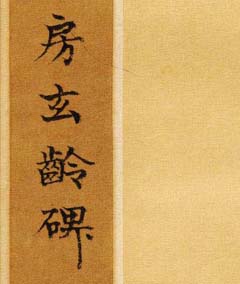 房玄齡碑